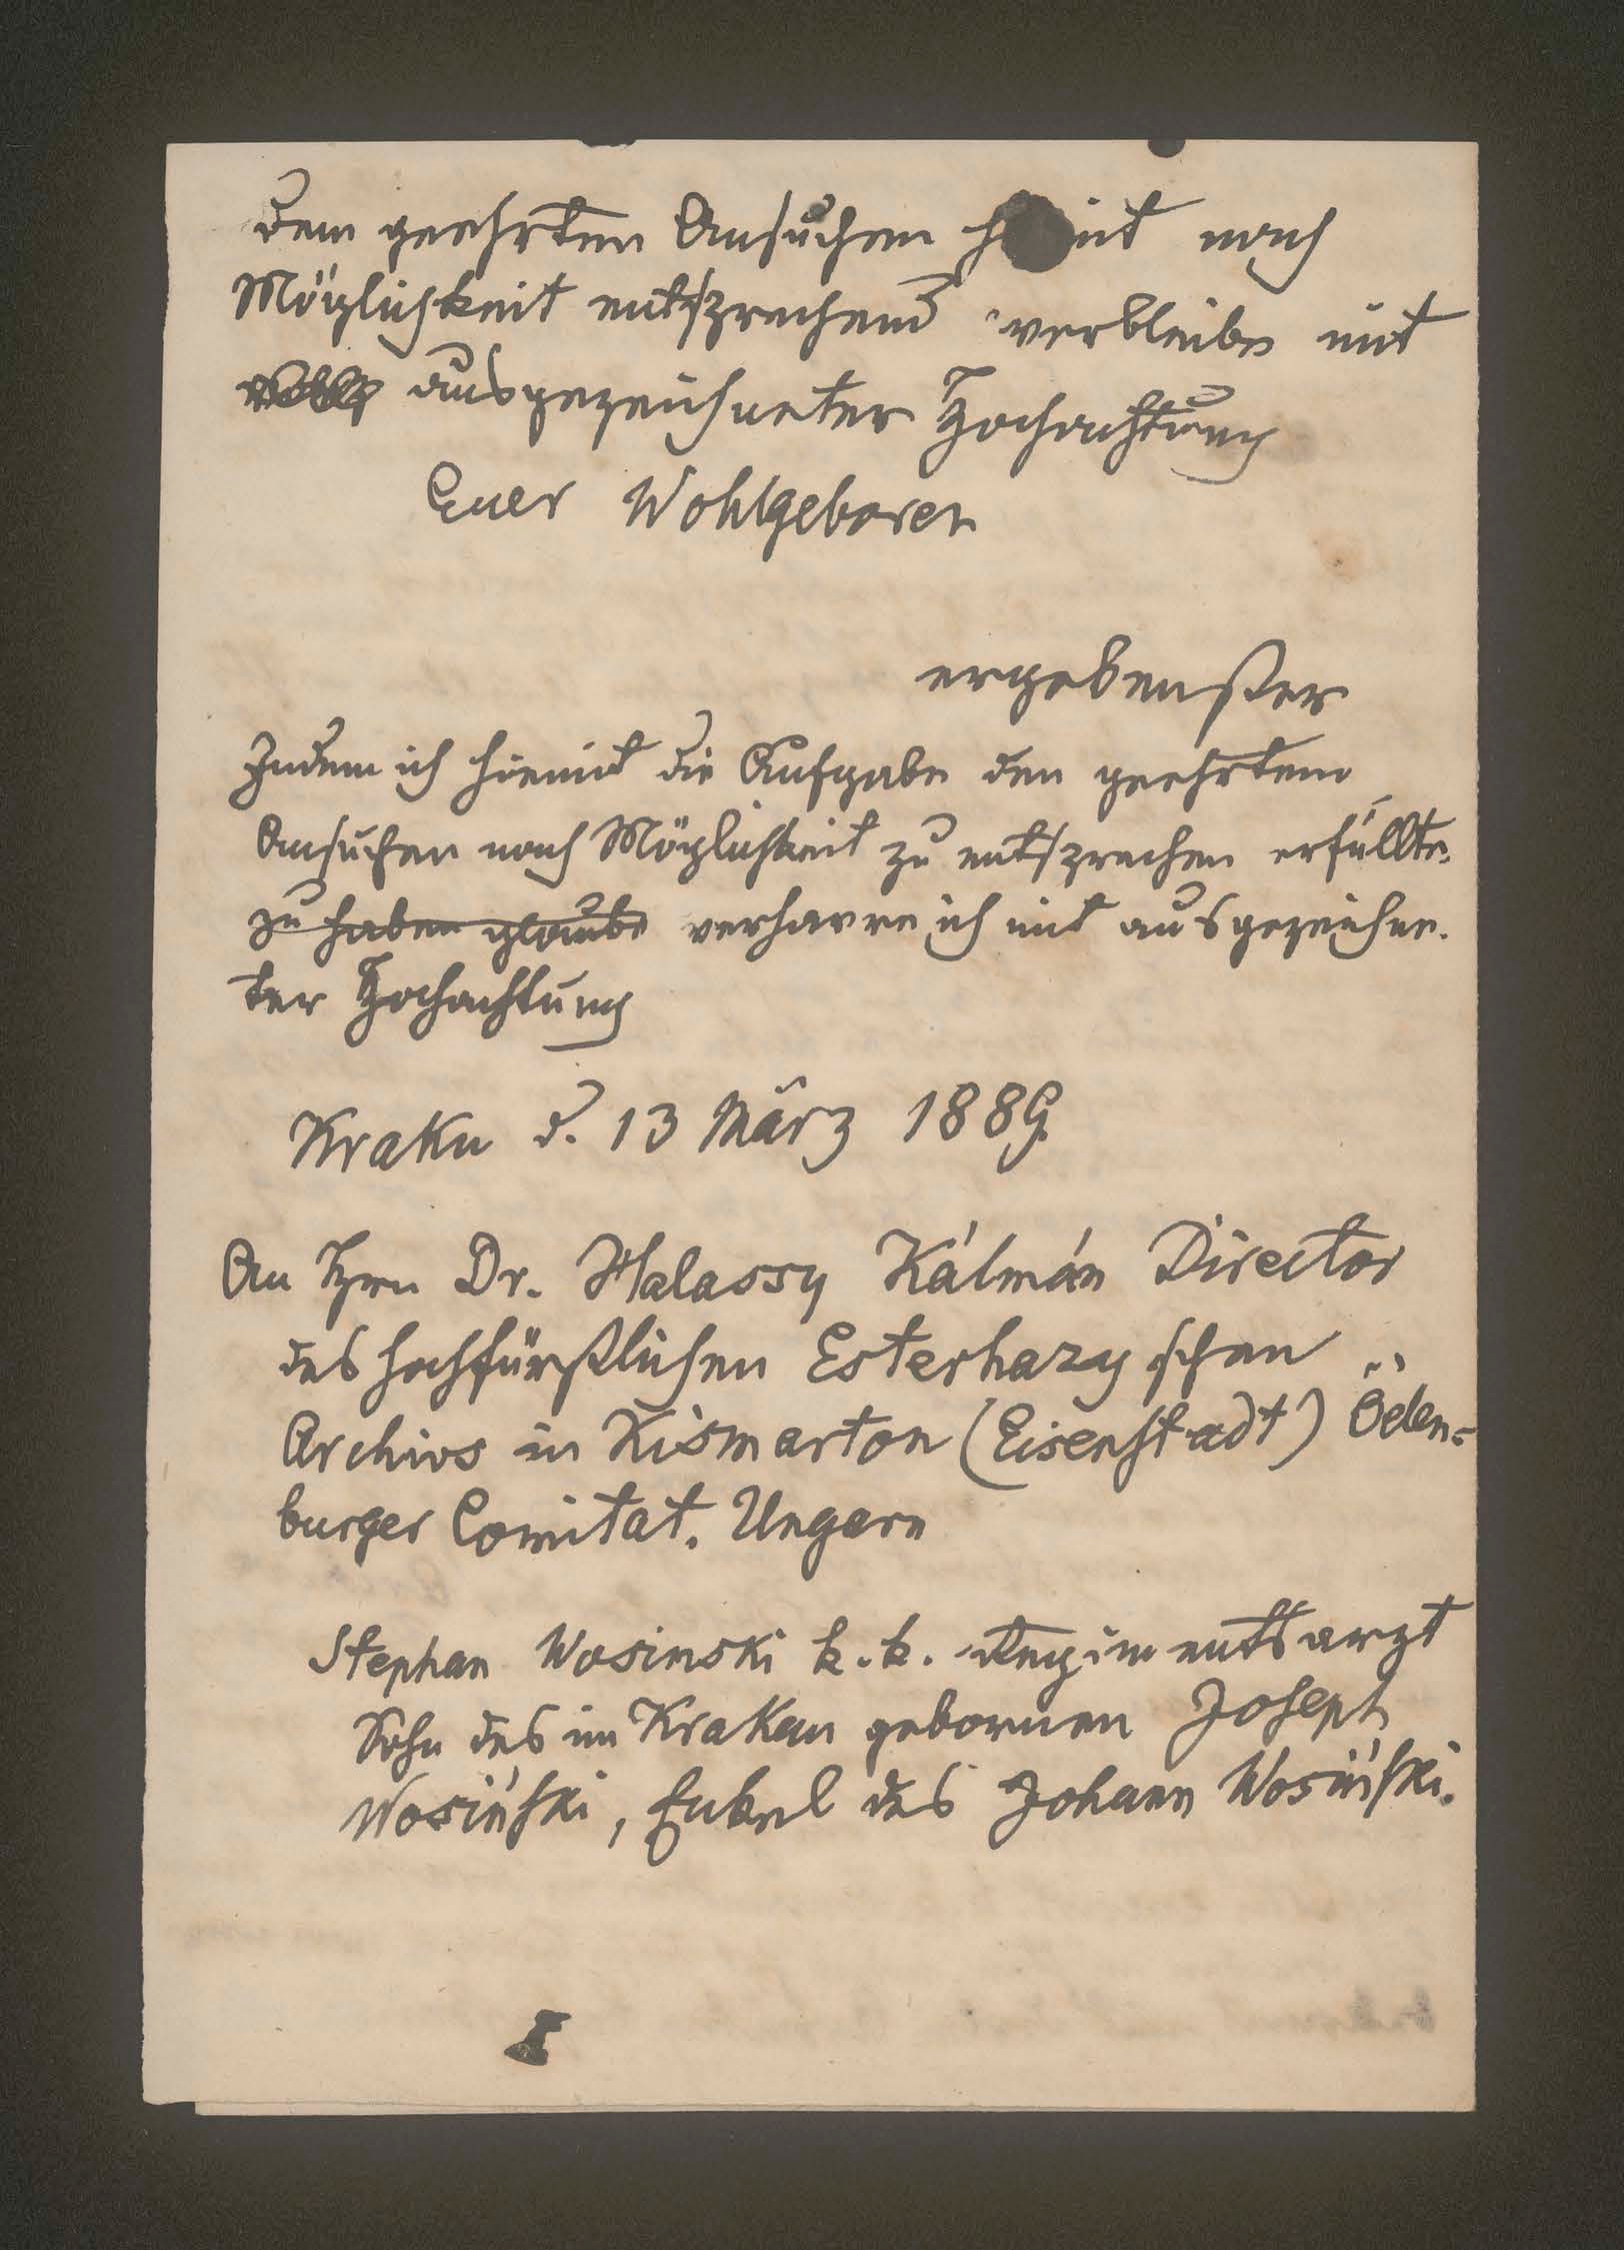 dem geehrten Ansuchen nach
Möglichkeit entsprechend verbleibe mit
ausgezeichneter Hochachtung
Euer Wohlgeboren
ergebenster
Indem ich hiemit die Aufgabe dem geehrtem
Ansuchen nach Möglichkeit zu entsprechen erfüllte
zu haben glaube verharre ich mit ausgezeichne-
ter Hochachtung
Krakau d. 13 März 1889
An Hrn Dr. Halassy Kálmán Director
des hochfürstlichen Esterhazyschen
Archivs in Kismarton (Eisenstadt) Öden=
burger Comitat. Ungarn
Stephan Wosinski k. k. Regimentsarzt
Sohn des in Krakau gebornen Joseph
Wosiński, Enkel des Johann Wosiński.